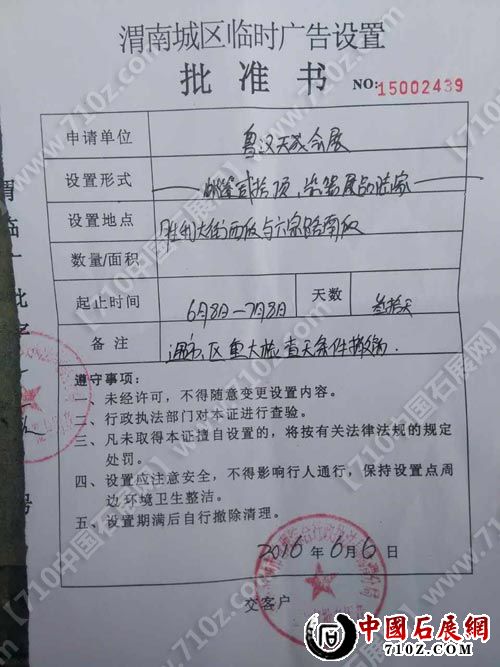 渭南城区临时广告设置
批准书
NO:15002439
申请单位 鲁汉天成会展
设置形式 帐篷贰拾顶,
设置地点 胜利大街西段与六泉路南段
数量/面积
起止时间 6月8日—7月8日 天数 叁拾天
备注 遇市、区重大检查无条件撤离.
遵守事项:
一、未经许可,不得随意变更设置内容。
二、行政执法部门对本证进行查验。
三、凡未取得本证擅自设置的,将按有关法律法规的规定
处罚。
四、设置应注意安全,不得影响行人通行,保持设置点周
边环境卫生整洁。
五、设置期满后自行撤除清理。
2016年6月6日
交客户
渭临广批字
号
【710中国石展网】
www.710z.com
中国石展网
710Z.COM